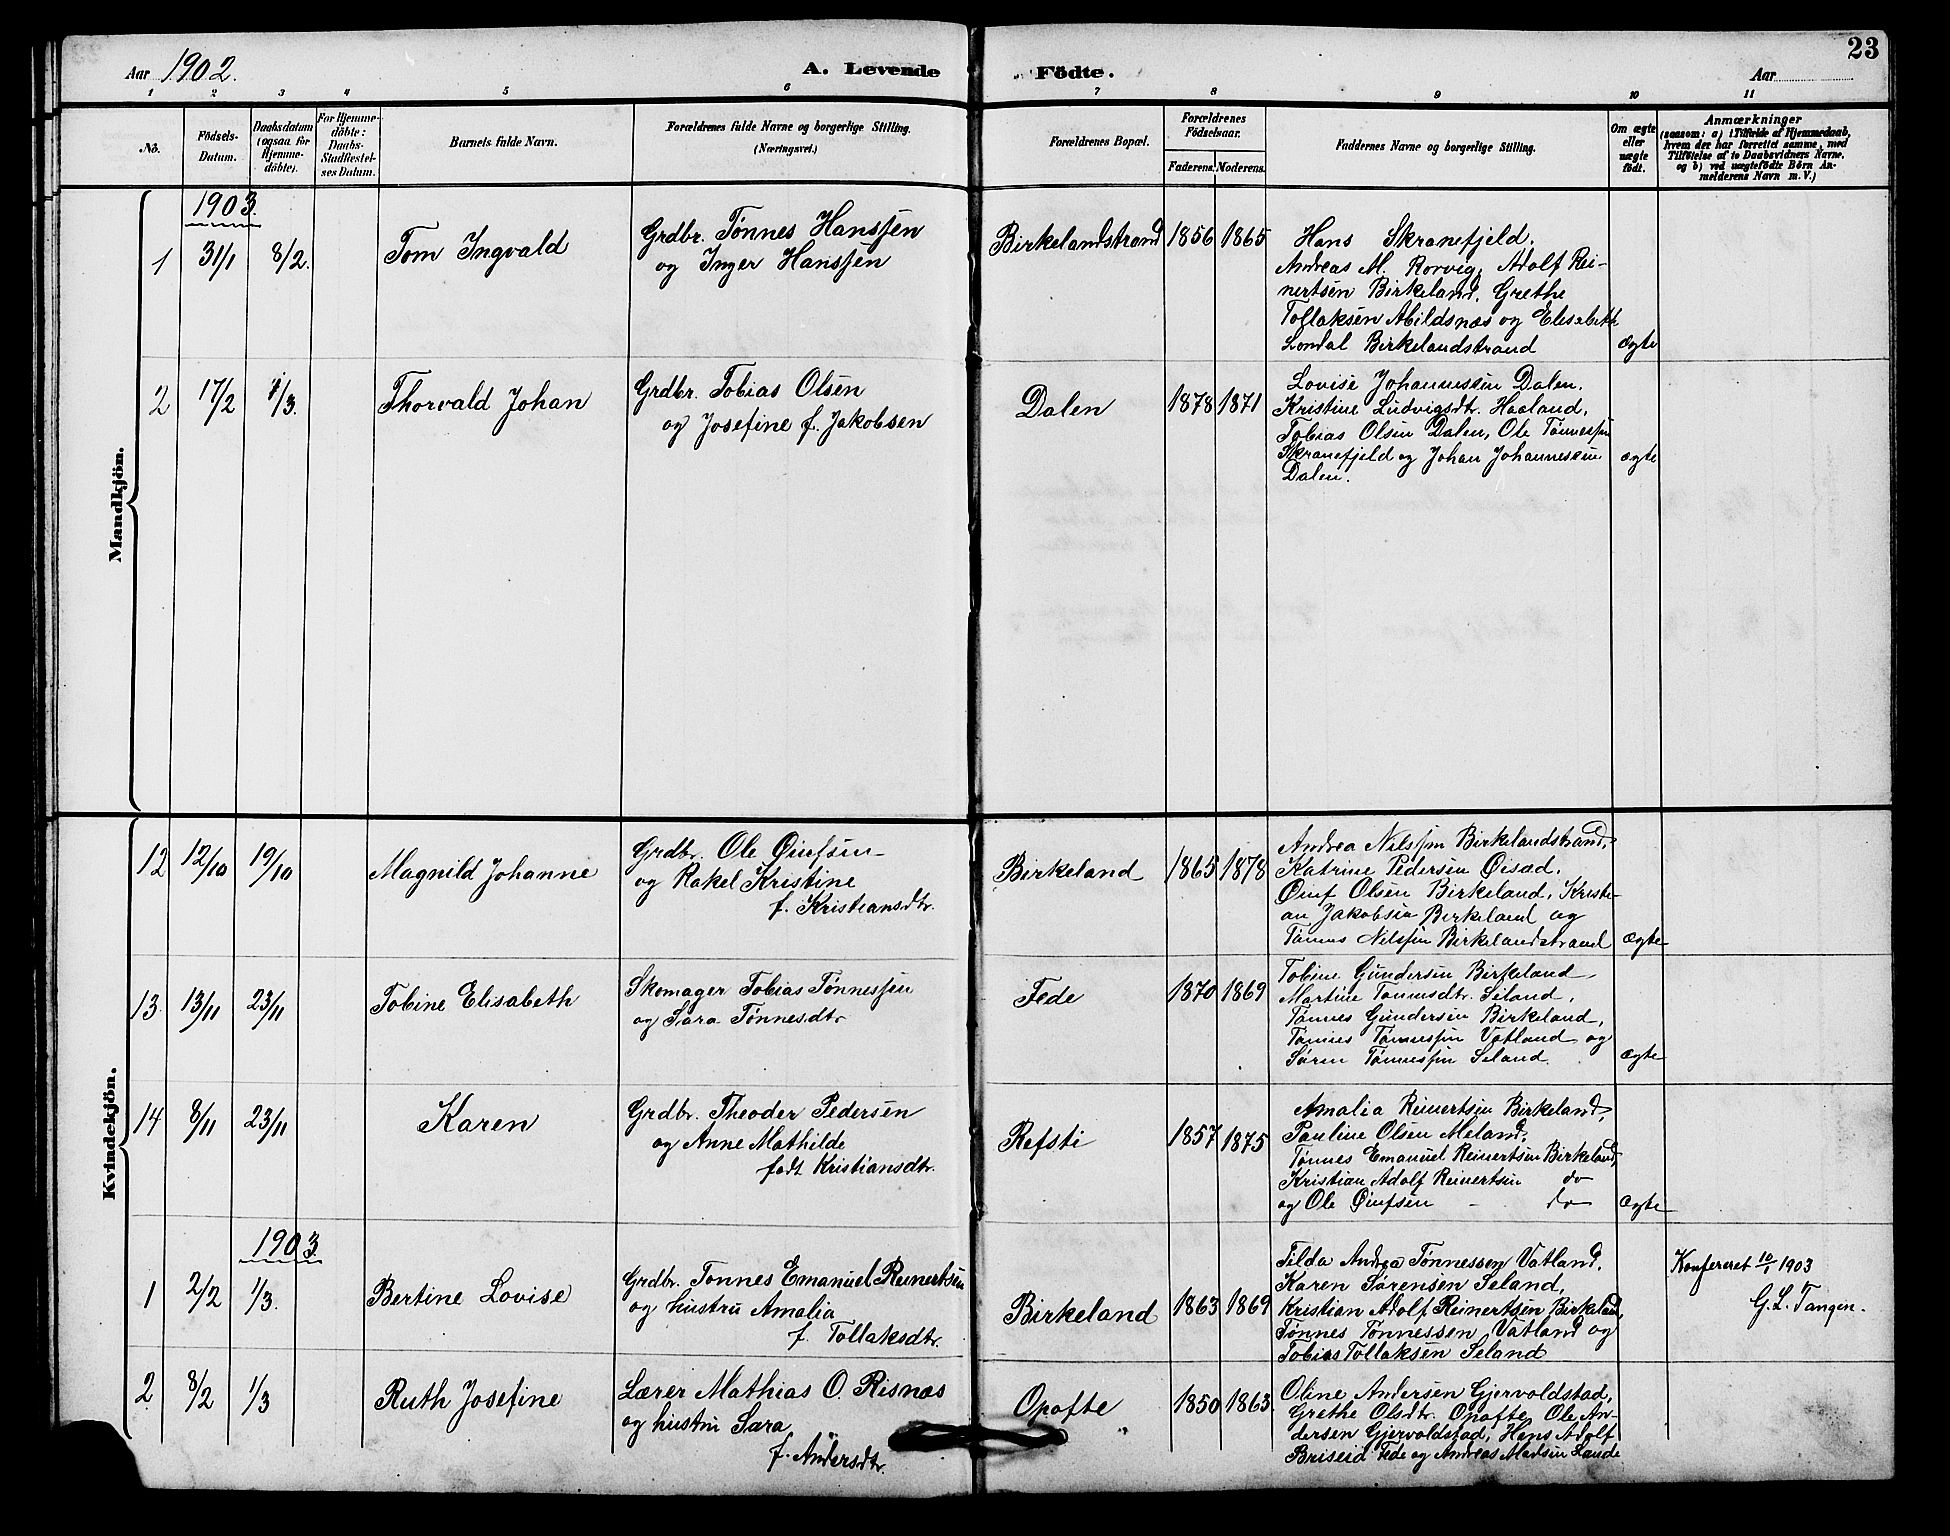 23
Aar 1902. A. Levende Födte. Aar
1 2 3 4 5 6 7 8 9 10 11
No.
Födsels-
Datum.
Daabsdatum
(ogsaa for
Hjemme-
döbte).
For Hjemme-
döbte:
Daabs-
Stadfæstel-
ses Datum.
Barnets fulde Navn.
Forældrenes fulde Navne og borgerlige Stilling.
(Næringsvei.)
Forældrenes Bopæl.
Forældrenes
Födselsaar.
Faderens. Moderens.
Faddernes Navne og borgerlige Stilling.
Om ægte
eller
uægte
födt.
Anmærkninger
(saasom: a) i Tilfælde af Hjemmedaab,
hvem der har forrettet samme, med
Tilföielse af to Daabsvidners Navne.
og b) ved uægtefödte Börn An-
melderens Navn m. V.)
Mandkjön.
1903.
1 31/1 8/2. Tom Ingvald
Grdbr. Tønnes Hanssen
og Inger Hanssen
Birkelandstrand 1856 1865
Hans Skranefjeld.
Andreas M. Rorvig, Adolf Rei-
nertsen Birkeland. Grethe
Tollaksen Abildsnæs og Elisabeth
Londal Birkelandstrand ægte
2 17/2 1/3. Thorvald Johan
Grdbr. Tobias Olsen
og Josefine f. Jakobsen
Dalen 1878 1871
Lovise Johannessen Dalen.
Kristine Ludvigsdtr. Haaland,
Tobias Olsen Dalen, Ole Tønnessen
Skranefjeld og Johan Johannessen ægte
Dalen.
Kvindekjön.
12 12/10 19/10 Magnild Johanne
Grdbr. Ole Øiufsen
og Rakel Kristine
f. Kristiansdtr.
Birkeland 1865 1878
Andrea Nilssen Birkelandstrand,
Katrine Pedersen Øisæd.
Øiuf Olsen Birkeland, Kristi-
an Jakobsen Birkeland og
Tønnes Nilssen Birkelandstrand ægte
13 13/11 23/11 Tobine Elisabeth
Skomager Tobias Tønnessen
og Sara Tønnesdtr
Fede 1870 1869
Tobine Gundersen Birkeland,
Martine Tønnesdtr. Seland,
Tønnes Gundersen Birkeland,
Tønnes Tønnessen Vatland og
Søren Tønnessen Seland. ægte
14 8/11 23/11 Karen
Grdbr. Theoder Pedersen
og Anne Mathilde
født Kristiansdtr.
Refsti 1857 1875
Amalia Reinertsen Birkeland,
Pauline Olsen Meland,
Tønnes Emanuel Reinertsen Birkeland,
Kristian Adolf Reinertsen do
og Ole Øiufsen - do ægte
1903.
1 2/2 1/3. Bertine Lovise
Grdbr. Tonnes Emanuel Reinertsen
og hustru Amalia
f. Tollaksdtr.
Birkeland 1863 1869
Tilda Andrea Tønnessen Vatland.
Karen Sørensen Seland,
Kristian Adolf Reinertsen Birkeland,
Tønnes Tønnessen Vatland og
Tobias Tollaksen Seland
Konfereret 10/1 1903
G. L. Tangen.
2 8/2 1/3 Ruth Josefine
Lærer Mathias O. Risnæs
og hustru Sara
f. Andersdtr.
Opofte 1850 1863
Oline Andersen Gjervoldstad,
Grethe Olsdtr. Opofte, Ole An-
dersen Gjervoldstad, Hans Adolf
Briseid Fede og Andreas Madsen Lande